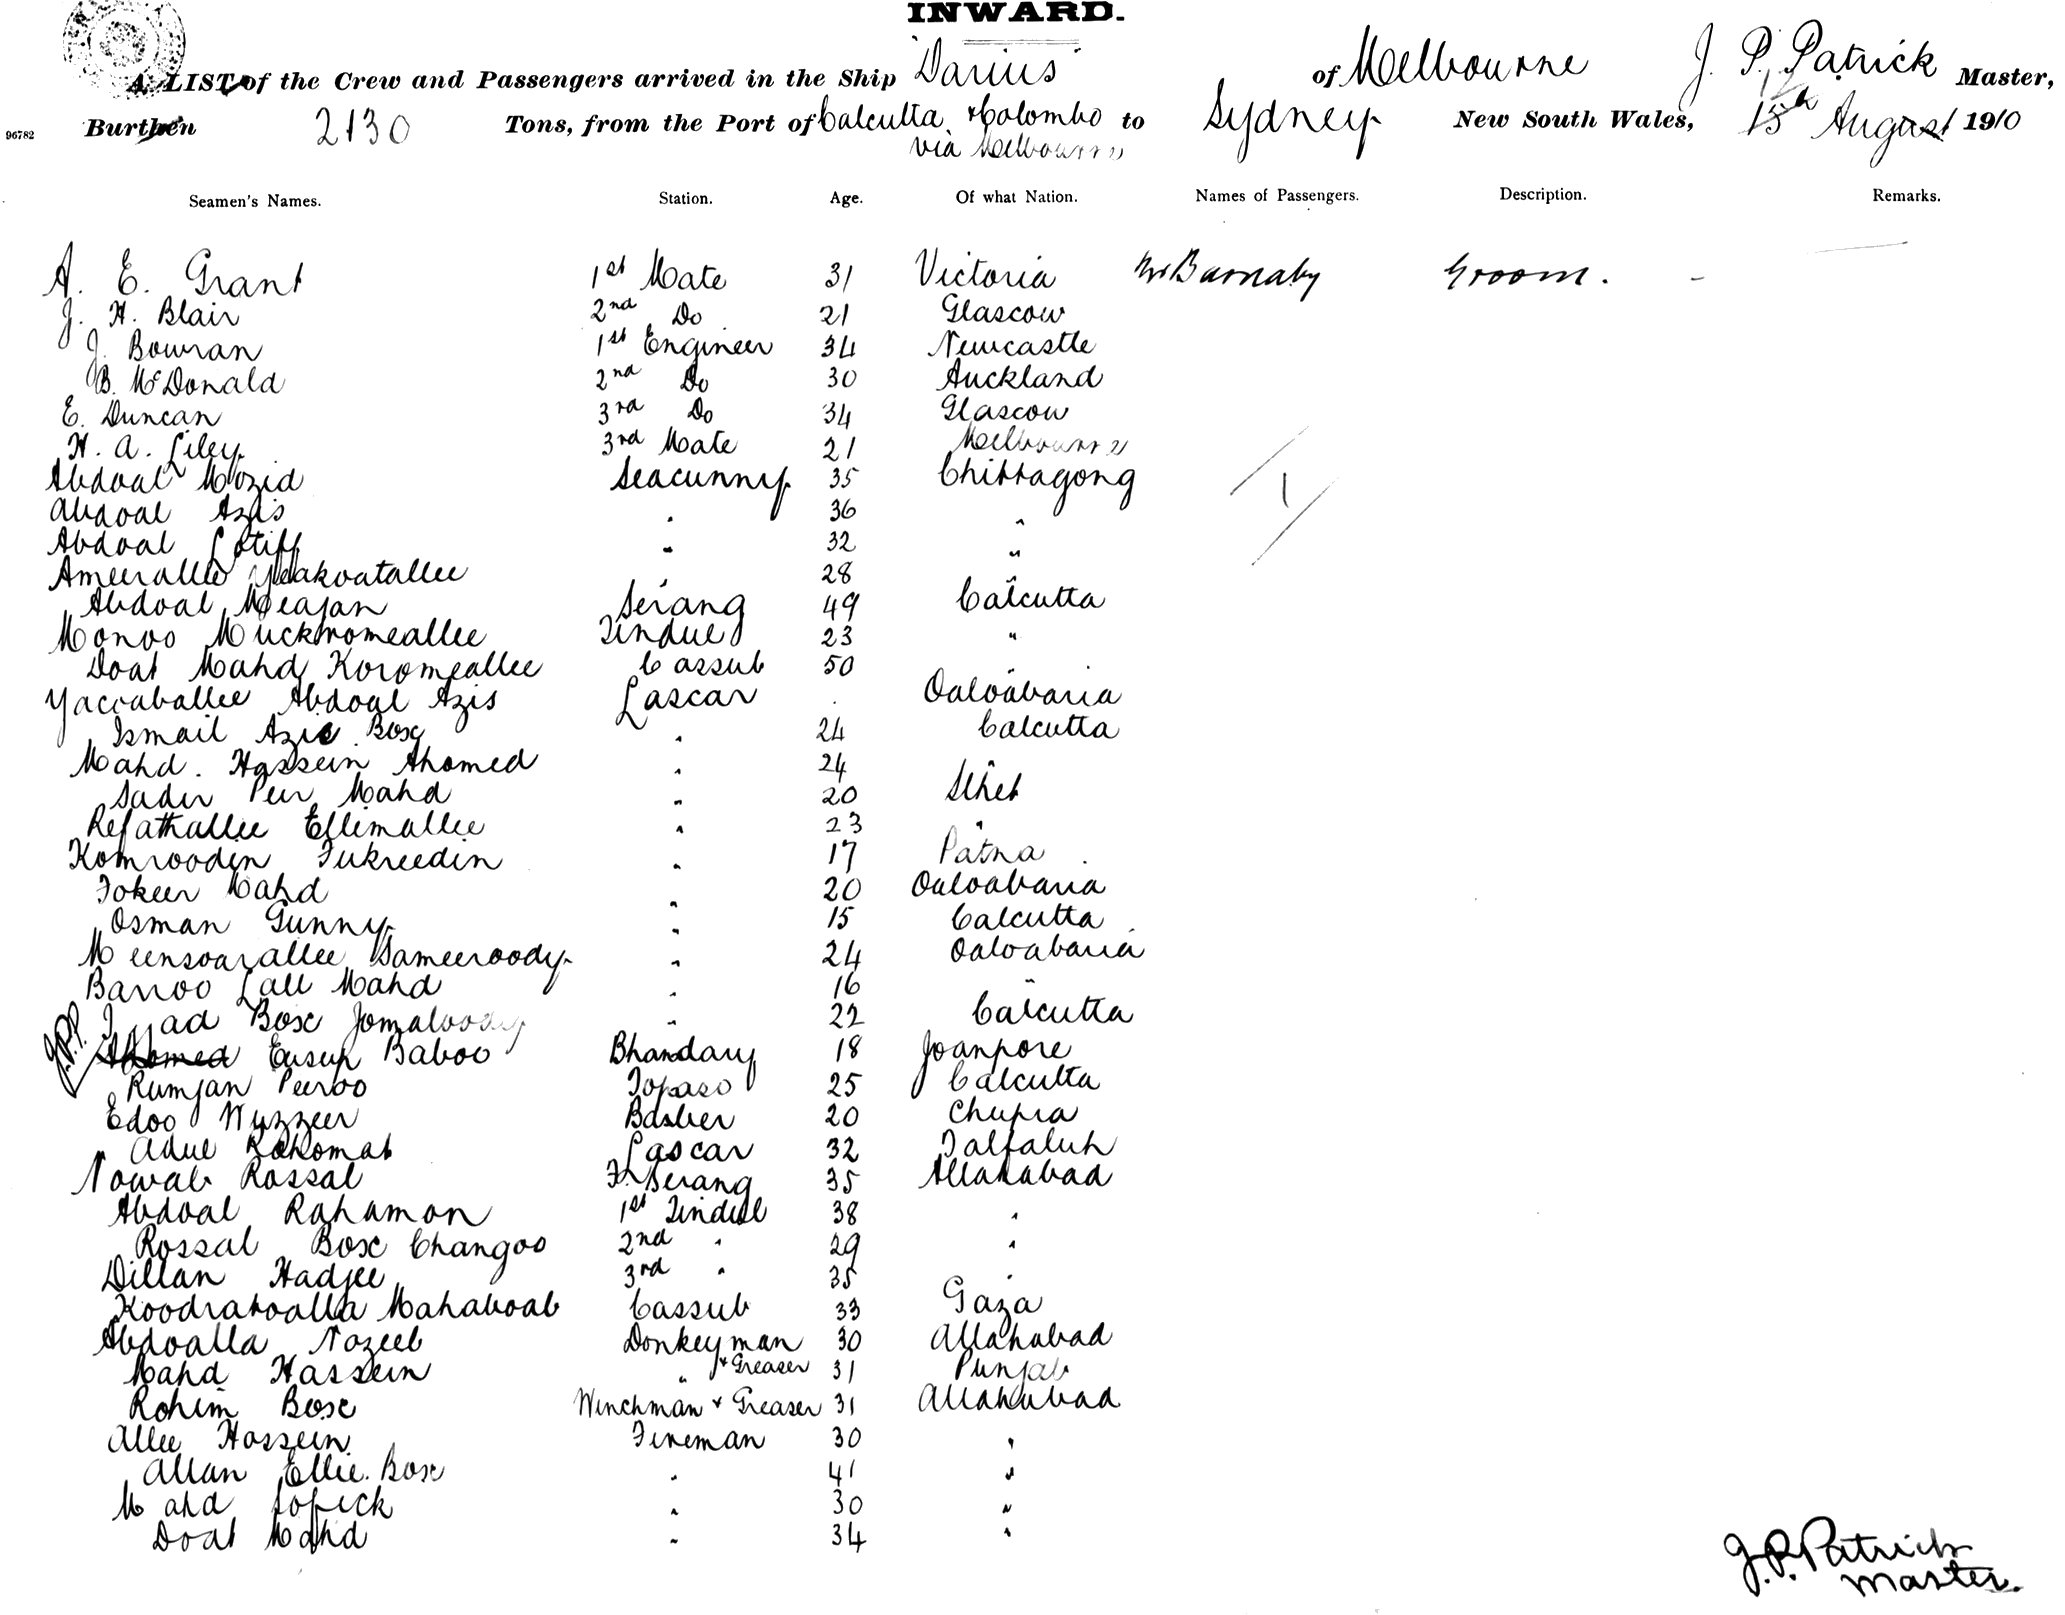 INWARD.
A LIST of the Crew and Passengers arrived in the Ship Darius of Melbourne J. P. Patrick Master,
96782 Burthen 2130 Tons, from the Port of Calcutta & Colombo to Sydney New South Wales, 15th August 1910
via Melbourne
Seamen's Names. Station. Age. Of what Nation. Names of Passengers. Description. Remarks.
A. E. Grant 1st Mate 31 Victoria Mr Barnaby Groom. -
J. H. Blair 2nd Do 21 Glascow
J. Bowran 1st Engineer 34 Newcastle
B. McDonald 2nd Do 30 Auckland
E. Duncan 3rd Do 34 Glascow
H. A. Liley 3rd Mate 21 Melbourne
Abdoal Mozid Seacunny 35 Chittagong
Abdoal Azis " 36 "
Abdoal Lotiff " 32 "
Ameerallee Yeakoatallee " 28 "
Abdoal Meajan Serang 49 Calcutta
Monoo Muckromeallee Tindue 23 "
Doat Mahd Koromeallee Cassub 50 "
Yaccaballee Abdoal Azis Lascar " Oaloabaria
Ismail Azie Box " 24 Calcutta
Mahd. Hossein Ahomed " 24 "
Sadir Peir Mahd " 20 Silhet
Refathallee Ellimallee " 23 "
Komrooden Fukreedin " 17 Patna
Fokeer Mahd " 20 Oaloabaria
Osman Gunny " 15 Calcutta
Meensoarallee Sameeroody " 24 Oaloabaria
Baroo Lall Mahd " 16 "
Box Jomaloody " 22 Calcutta
J.P.P. Ahomed Eusup Baboo Bhandary 18 Joanpore
Rumjan Peeroo Topaso 25 Calcutta
Edoo Wuzzeer Barber 20 Chupra
Adue Rohomat Lascar 32 Talfaluh
Nowab Rossal F. Serang 35 Allahabad
Abdoal Rahamon 1st Tindal 38 "
Rossal Box Changoo 2nd " 29 "
Dillan Hadjee 3rd " 35 "
Koodratoalla Mahaboab Cassub 33 Gaza
Abdoalla Nozeeb Donkeyman 30 Allahabad
Mahd Hassein " & Greaser 31 Punjab
Rohim Box Winchman & Greaser 31 Allahabad
Allee Hossein Fireman 30 "
Allan Ellie Box " 41 "
Mahd Sofick " 30 "
Doat Mahd " 34 "
J. P. Patrick
Master.